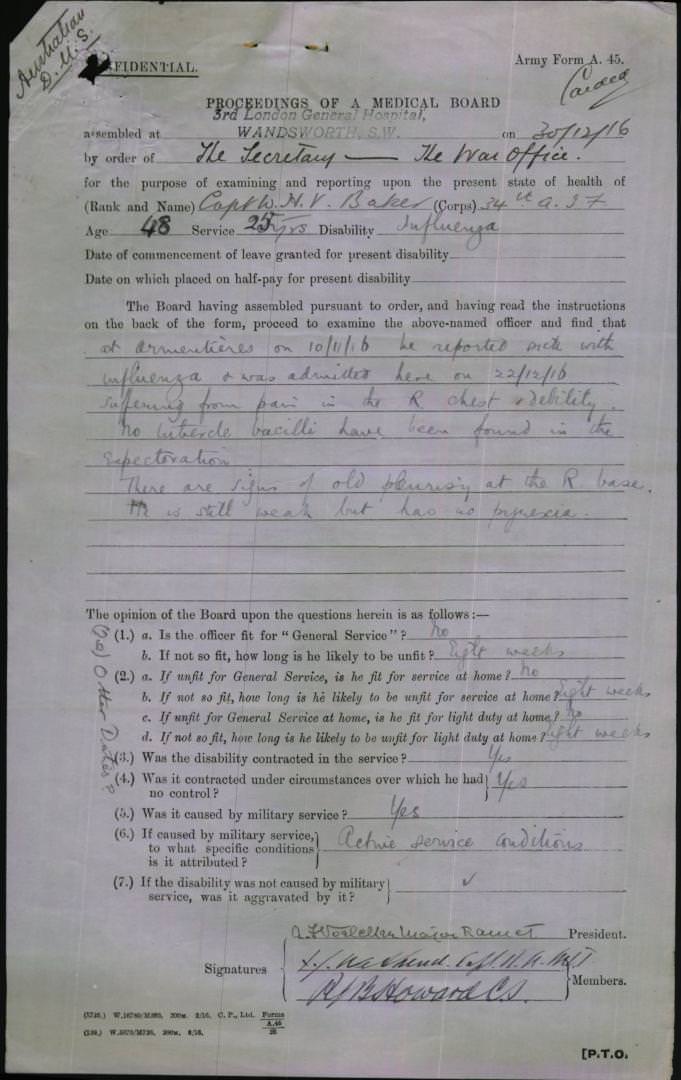 Australian
D.M.S.
FIDENTIAL.
Army Form A. 45.
Carded
PROCEEDINGS OF A MEDICAL BOARD
3rd London General Hospital,
assembled at WANDSWORTH, S.W. on 30/12/16
by order of The Secretary — The War Office.
for the purpose of examining and reporting upon the present state of health of
(Rank and Name) Capt W. H. V. Baker (Corps) 34th A. I F
Age 48 Service 25 yrs Disability Influenza
Date of commencement of leave granted for present disability
Date on which placed on half-pay for present disability
The Board having assembled pursuant to order, and having read the instructions
on the back of the form, proceed to examine the above-named officer and find that
at Armentières on 10/11/16 he reported sick with
influenza & was admitted here on 22/12/16
suffering from pain in the R chest & debility.
No tubercle bacilli have been found in the
expectoration
There are signs of old pleurisy at the R. base.
He is still weak but has no pyrexia.
The opinion of the Board upon the questions herein is as follows:—
(1.) a. Is the officer fit for "General Service"? No
b. If not so fit, how long is he likely to be unfit? Eight weeks
(2.) a. If unfit for General Service, is he fit for service at home? No
b. If not so fit, how long is he likely to be unfit for service at home? Eight weeks
c. If unfit for General Service at home, is he fit for light duty at home? No
d. If not so fit, how long is he likely to be unfit for light duty at home? Eight weeks
Other Dates?
(3.) Was the disability contracted in the service? Yes
(4.) Was it contracted under circumstances over which he had
no control? Yes
(5.) Was it caused by military service? Yes
(6.) If caused by military service,
to what specific conditions
is it attributed? Active service conditions
(7.) If the disability was not caused by military
service, was it aggravated by it? ✓
Major Ramct President.
Signatures
Members.
R J B Howard
(5725.) W.16780/M355. 200M. 2/16. C. P., Ltd. Forms
A.45
(539.) W.5679/M736. 200M. 8/16. 28
[P.T.O.